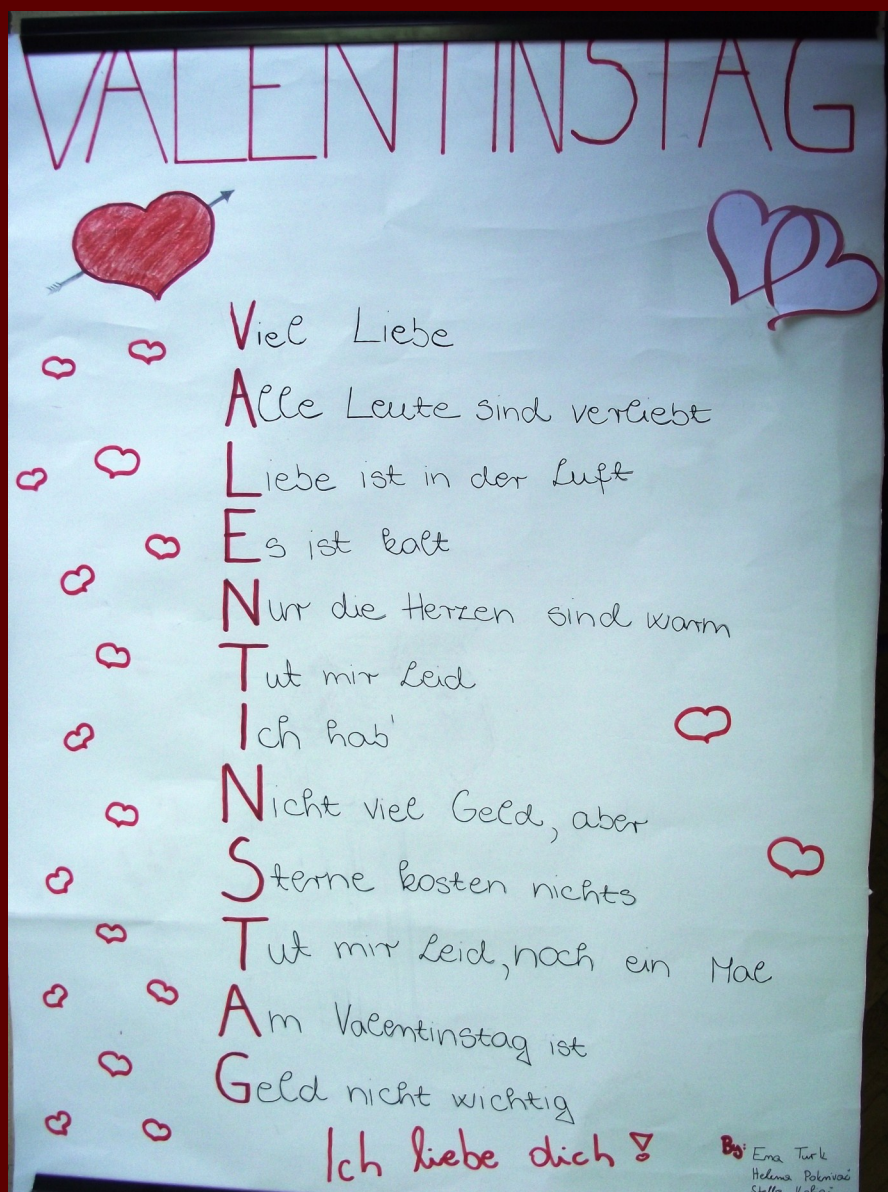 VALENTINSTAG
Viel Liebe
Alle Leute sind verliebt
Liebe ist in der Luft
Es ist kalt
Nur die Herzen sind warm
Tut mir Leid
Ich hab'
Nicht viel Geld, aber
Sterne kosten nichts
Tut mir Leid, noch ein Mal
Am Valentinstag ist
Geld nicht wichtig
Ich liebe dich!
By: Ema Turk
Helena
Stella